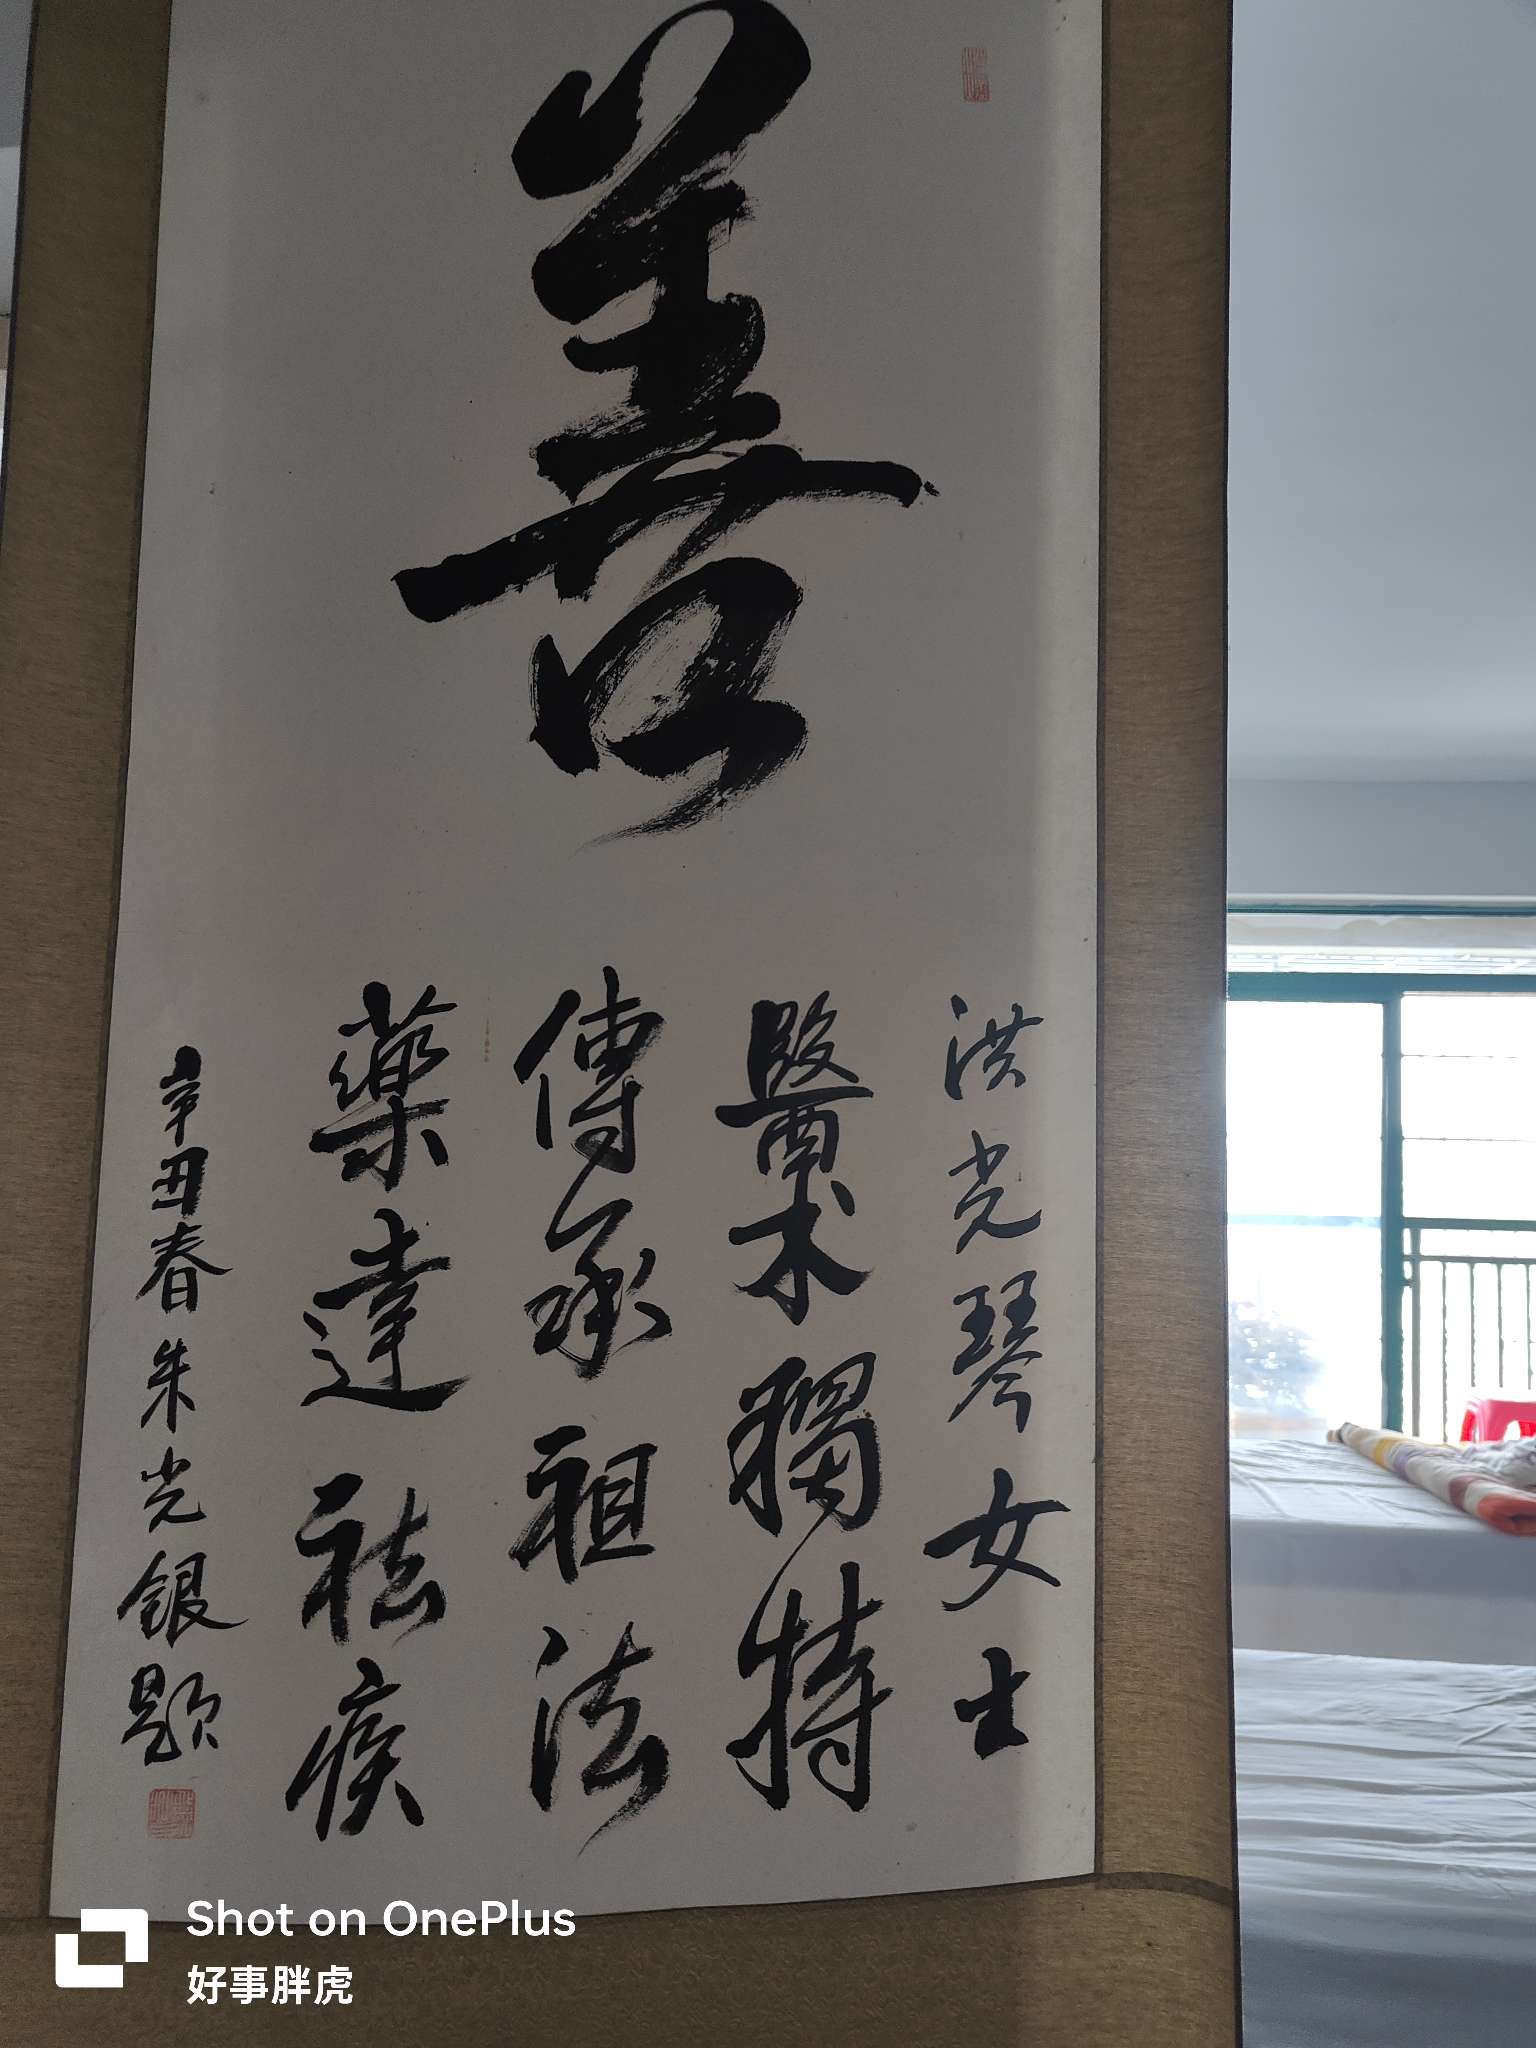 善
洪光琴女士
醫术獨特
傳承祖法
藥達祛疾
辛丑春 朱光銀題
Shot on OnePlus
好事胖虎